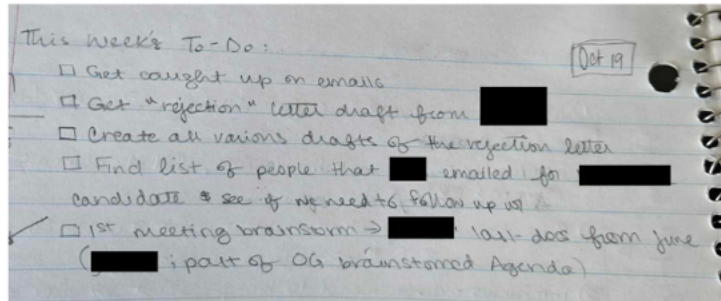 This week's To-Do:
Oct 19
☐ Get caught up on emails
☐ Get "rejection" letter draft from
☐ Create all various drafts of the rejection letter
☐ Find list of people that emailed for
candidate & see if we need to follow up w/
☐ 1st meeting brainstorm → last doc from June
( ; part of OG brainstormed Agenda)